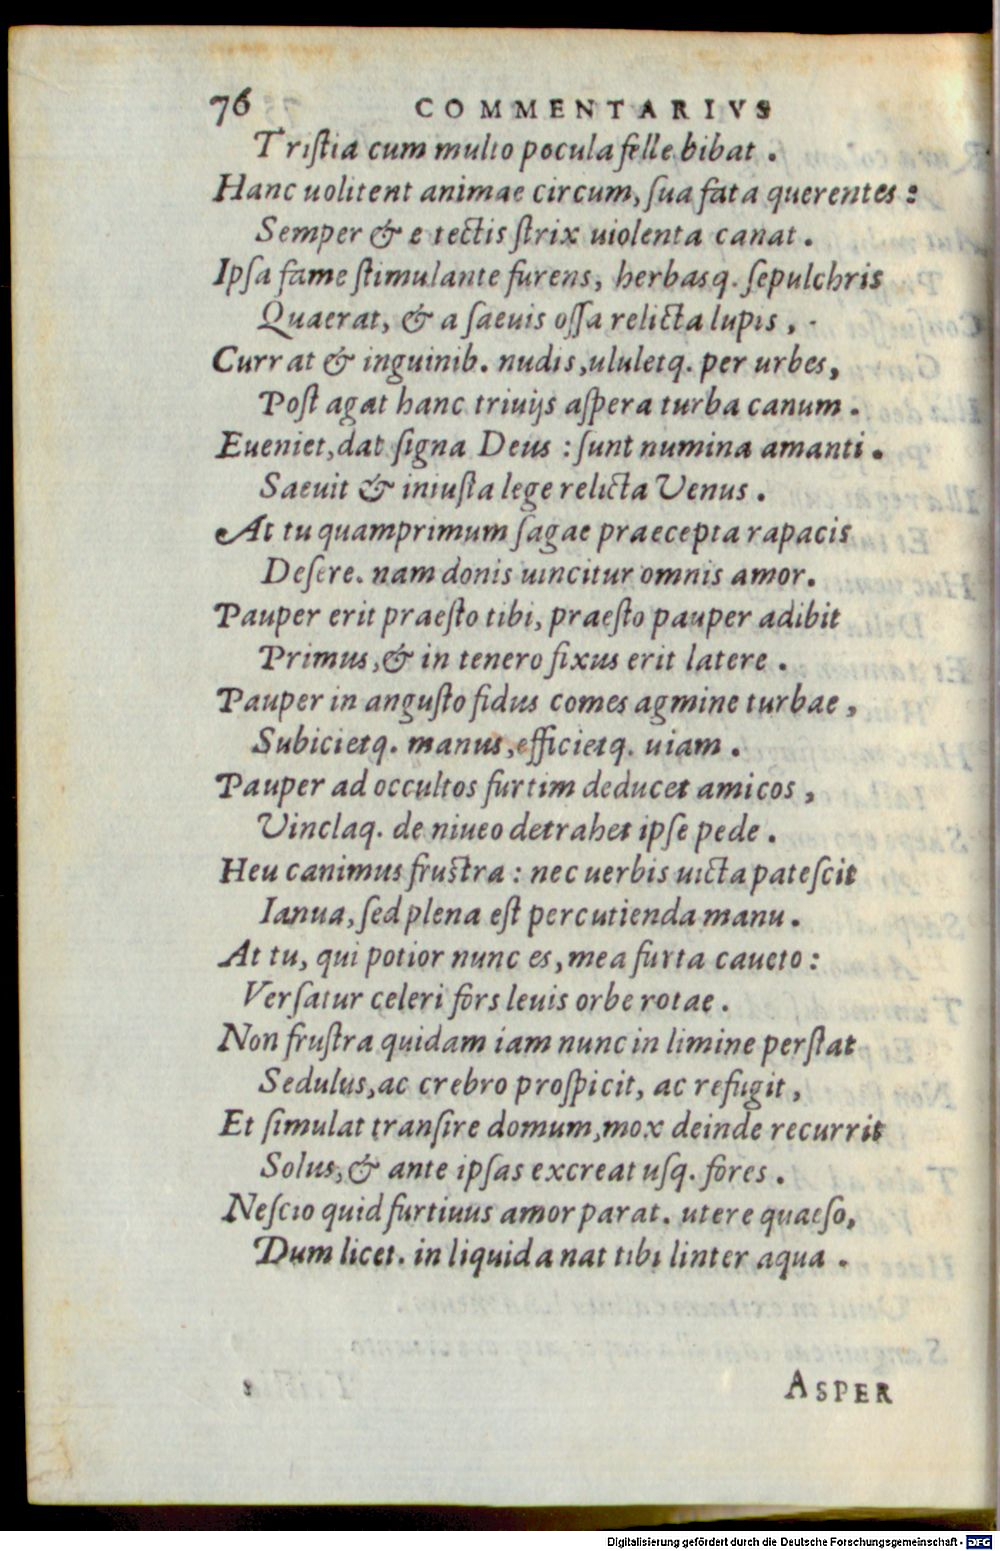 76 COMMENTARIVS
Tristia cum multo pocula felle bibat.
Hanc uolitent animae circum, sua fata querentes:
Semper & e tectis strix uiolenta canat.
Ipsa fame stimulante furens, herbasq. sepulchris
Quaerat, & a saeuis ossa relicta lupis,
Currat & inguinib. nudis, ululetq. per urbes,
Post agat hanc triuijs aspera turba canum.
Eueniet, dat signa Deus: sunt numina amanti.
Saeuit & iniusta lege relicta Venus.
At tu quamprimum sagae praecepta rapacis
Desere. nam donis uincitur omnis amor.
Pauper erit praesto tibi, praesto pauper adibit
Primus, & in tenero fixus erit latere.
Pauper in angusto fidus comes agmine turbae,
Subicietq. manus, efficietq. uiam.
Pauper ad occultos furtim deducet amicos,
Vinclaq. de niueo detrahet ipse pede.
Heu canimus frustra: nec uerbis uicta patescit
Ianua, sed plena est percutienda manu.
At tu, qui potior nunc es, mea furta caueto:
Versatur celeri fors leuis orbe rotae.
Non frustra quidam iam nunc in limine perstat
Sedulus, ac crebro prospicit, ac refugit,
Et simulat transire domum, mox deinde recurrit
Solus, & ante ipsas excreat usq. fores.
Nescio quid furtiuus amor parat. utere quaeso,
Dum licet. in liquida nat tibi linter aqua.
ASPER
Digitalisierung gefördert durch die Deutsche Forschungsgemeinschaft - DFG